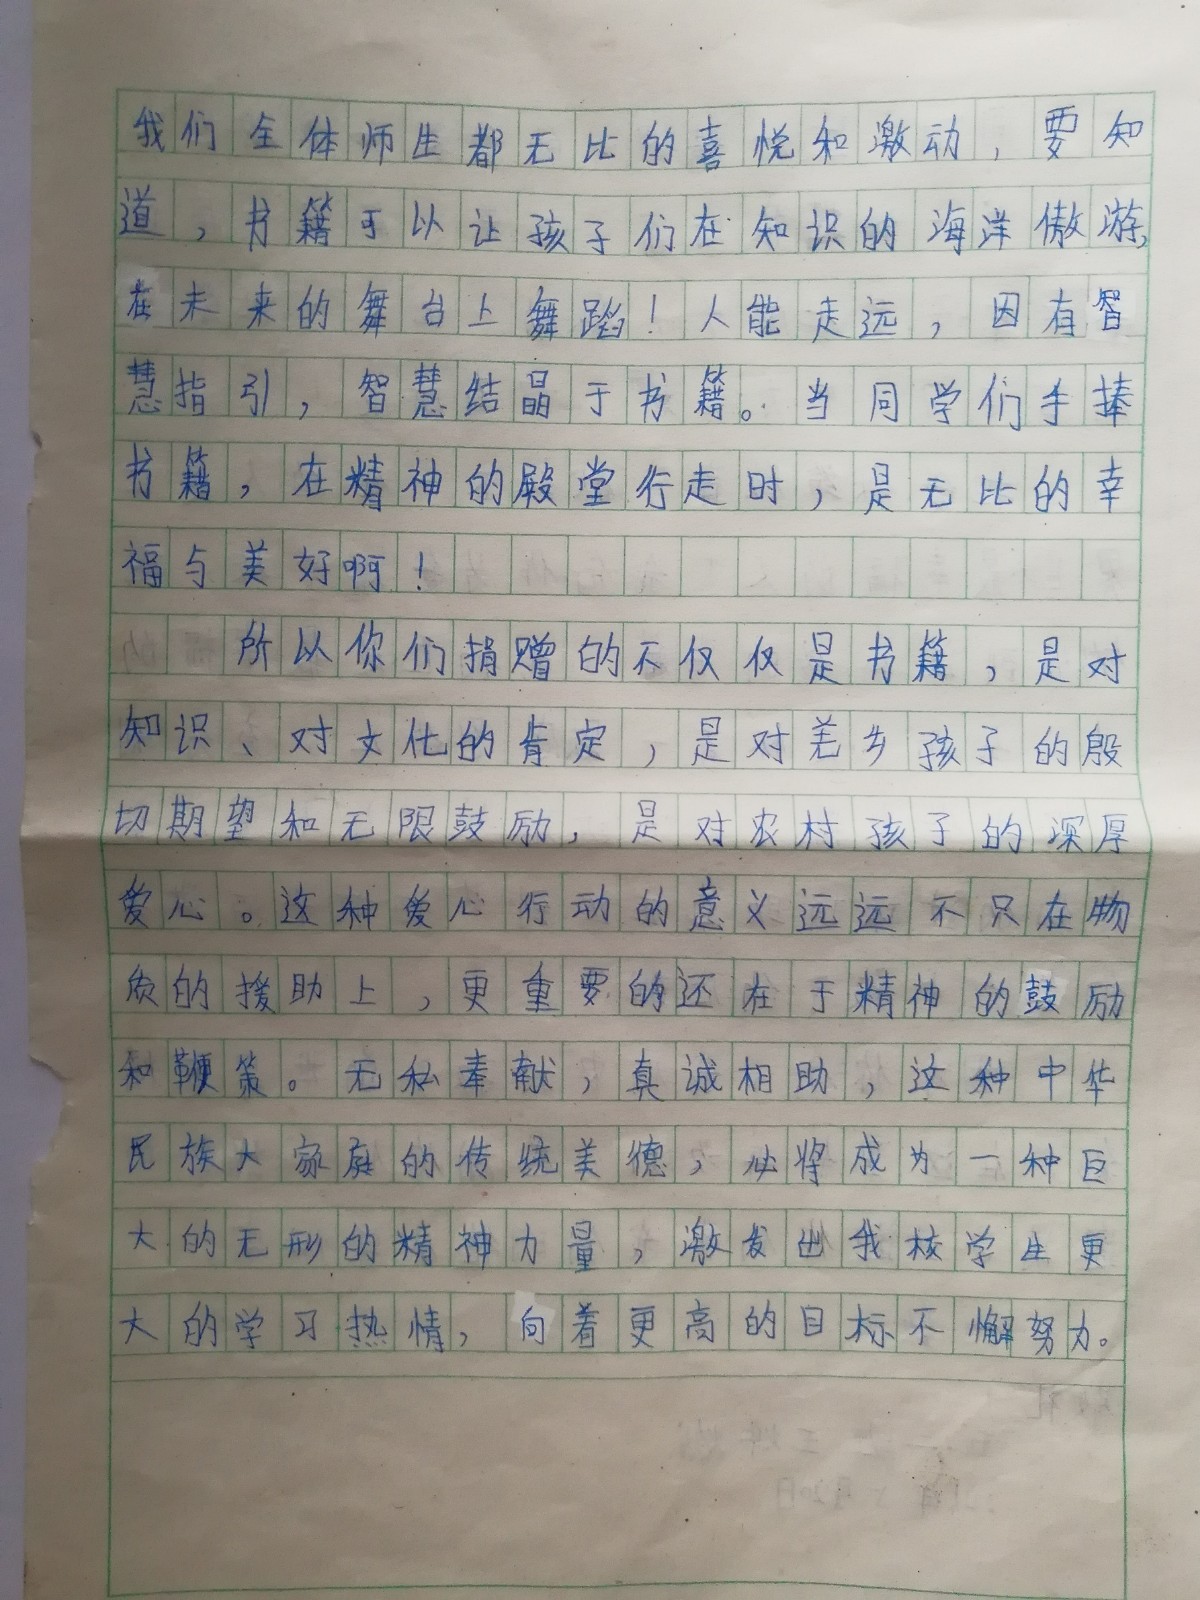 我们全体师生都无比的喜悦和激动，要知
道，书籍可以让孩子们在知识的海洋傲游，
在未来的舞台上舞蹈！人能走远，因有智
慧指引，智慧结晶于书籍。当同学们手捧
书籍，在精神的殿堂行走时，是无比的幸
福与美好啊！
所以你们捐赠的不仅仅是书籍，是对
知识、对文化的肯定，是对羌乡孩子的殷
切期望和无限鼓励，是对农村孩子的深厚
爱心。这种爱心行动的意义远远不只在物
质的援助上，更重要的还在于精神的鼓励
和鞭策。无私奉献，真诚相助，这种中华
民族大家庭的传统美德，必将成为一种巨
大的无形的精神力量，激发出我校学生更
大的学习热情，向着更高的目标不懈努力。